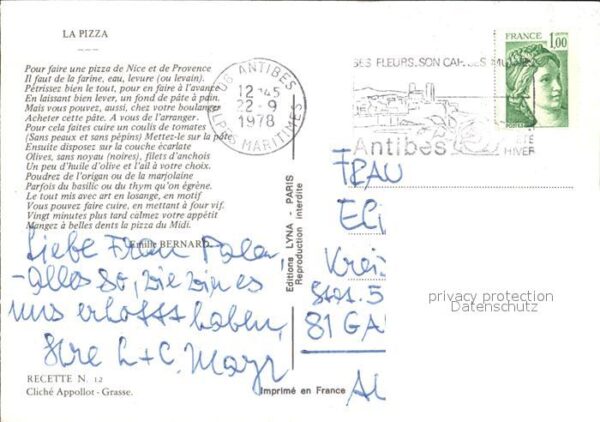 LA PIZZA
Pour faire une pizza de Nice et de Provence
Il faut de la farine, eau, levure (ou levain).
Pétrissez bien le tout, pour en faire à l'avance
En laissant bien lever, un fond de pâte à pain.
Mais vous pouvez, aussi, chez votre boulanger
Acheter cette pâte. A vous de l'arranger.
Pour cela faites cuire un coulis de tomates
(Sans peaux et sans pépins) Mettez-le sur la pâte
Ensuite disposez sur la couche écarlate
Olives, sans noyau (noires), filets d'anchois
Un peu d'huile d'olive et l'ail à votre choix.
Poudrez de l'origan ou de la marjolaine
Parfois du basilic ou du thym qu'on égrène.
Le tout mis avec art en losange, en motif
Vous pouvez faire cuire, en mettant à four vif.
Vingt minutes plus tard calmez votre appétit
Mangez à belles dents la pizza du Midi.
Emilie BERNARD
Liebe Frau
alles so, wie wir es
uns erhofft haben,
Ihre L+C. Mayr
RECETTE N. 12
Cliché Appollot - Grasse.
Editions LYNA - PARIS
Reproduction interdite
Imprimé en France
06 ANTIBES
12 H 45
22-9
1978
ALPES MARITIMES
SES FLEURS. SON CAP. SES
Antibes
ETE
HIVER
FRANCE
1,00
POSTES
FRAU
Kreis
Str. 5
81 GA
privacy protection
Datenschutz